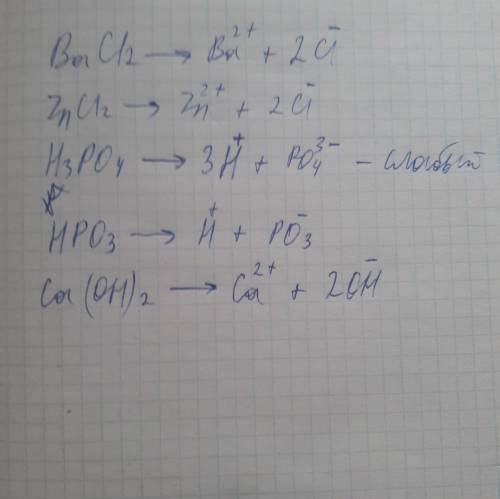 BaCl2 → Ba²⁺ + 2Cl⁻
ZnCl2 → Zn²⁺ + 2Cl⁻
H3PO4 → 3H⁺ + PO4³⁻ – слабый
HPO3 → H⁺ + PO3⁻
Ca(OH)2 → Ca²⁺ + 2OH⁻